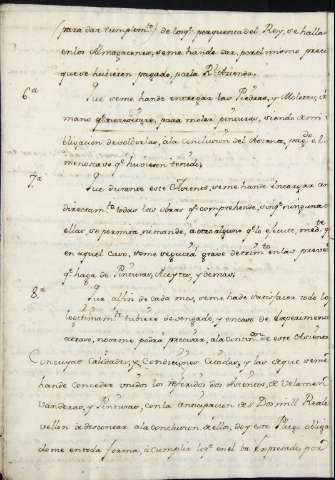 (para dar cumplimto) de los qe por quenta del Rey, se hallan
en los Almazaenes, se me hande dar, por el mismo precio
que se hubieren pagado, por la Rl Azienda.
6a Que se me hande entregar las Piedras, y Moletas, de
mano qe nezesitare, para moler pinturas, siendo de mi o-
bligacion debolverlas, ala conclusion del Asiento,
menoscavo qe huviesen tenido.
7a Que durante este Asiento, se me hande encargar
directamte todas las obras qe comprehende, sin qe ninguna de
ellas, se permita ni mande, a otro alguno qe lo ejecute, mede. qe
en aquel caso, se me seguirá grave detrimto en las preven
qe haga de Pinturas, Aceytes, y demas.
8.a Que al fin de cada mes, se me hade satisfacer todo lo qe
lexitimamte tubiere devengado, y en caso de experimentar
atraso, no se me podrá precisar, ala continon de este Asiento
Con cuyas Calidades, y Condiciones Citadas, y las que se me
hande conceder unidos los referidos dos Asientos, de
Vanderas, y Pinturas, con la anticipacion de Dos mill Reales
vellon a descontar ala conclusion de ellos, doy este Pliego obligan
dome en toda forma, a cumplir lo qe en el va Expresado, por